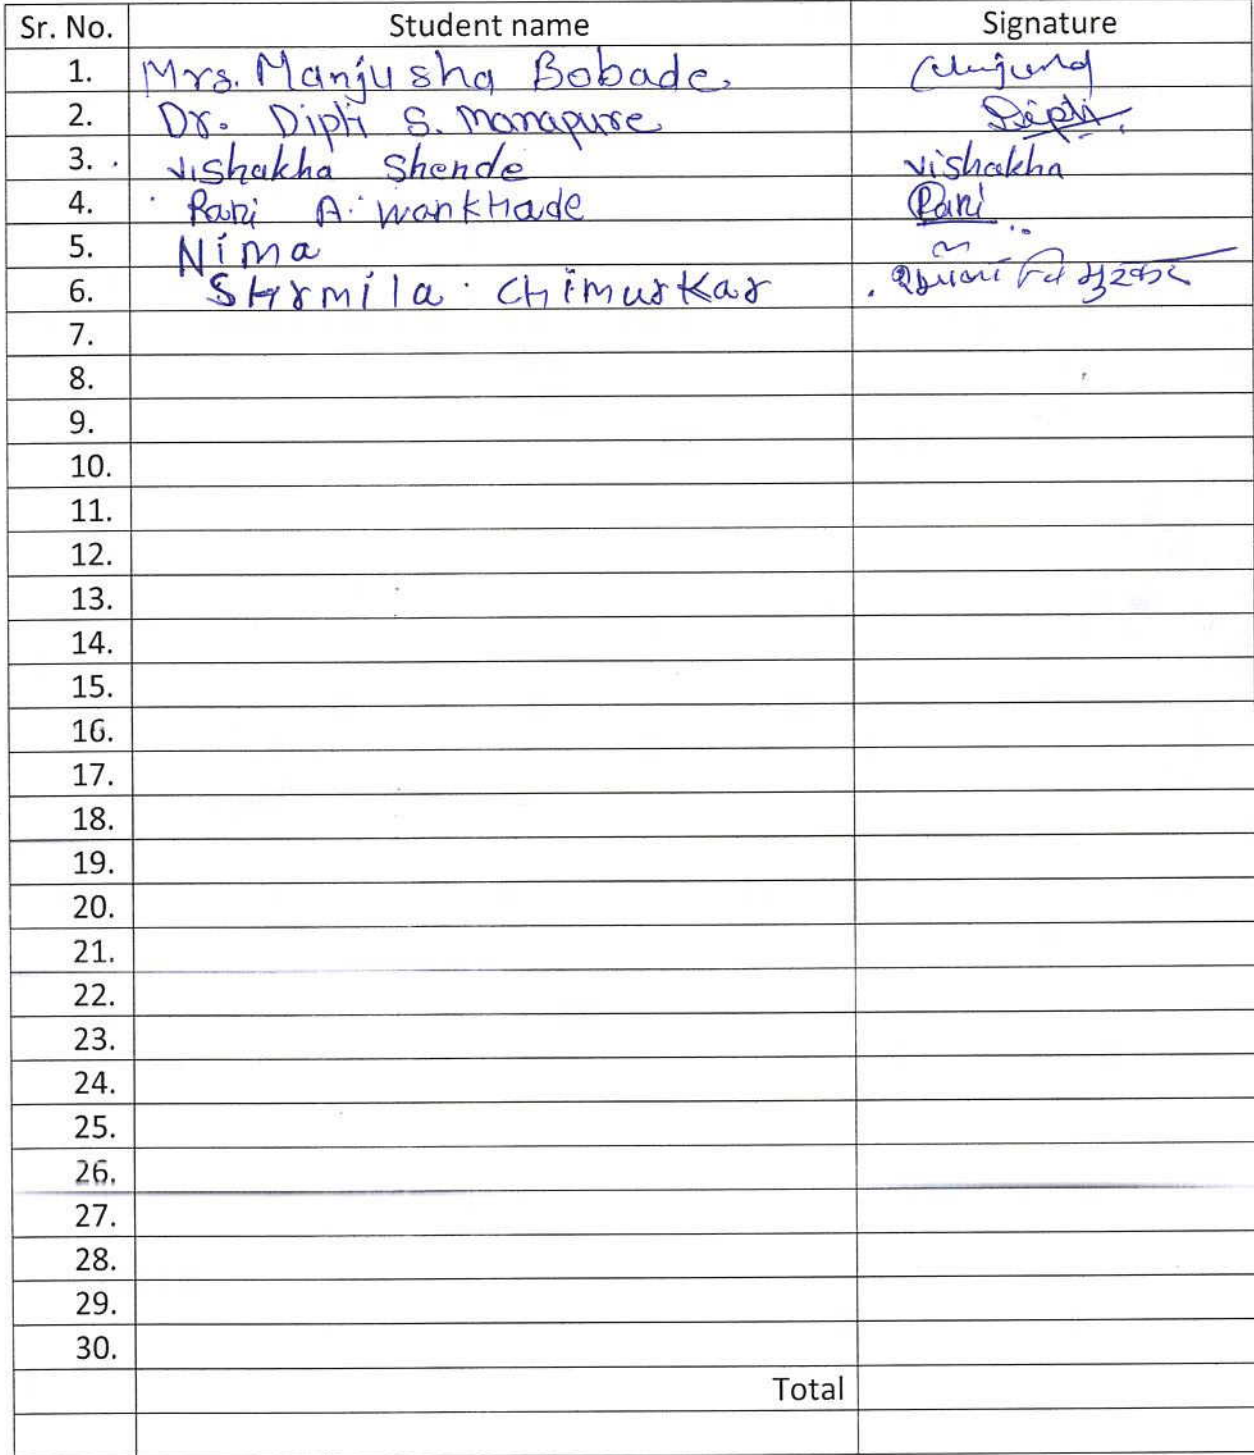 Sr. No. Student name Signature
1. Mrs. Manjusha Bobade
2. Dr. Dipti S. Manapure Dipti
3. Vishakha Shende Vishakha
4. Rani A. Wankhade Rani
5. Nima
6. SHrmila CHimurkar
7.
8.
9.
10.
11.
12.
13.
14.
15.
16.
17.
18.
19.
20.
21.
22.
23.
24.
25.
26.
27.
28.
29.
30.
Total